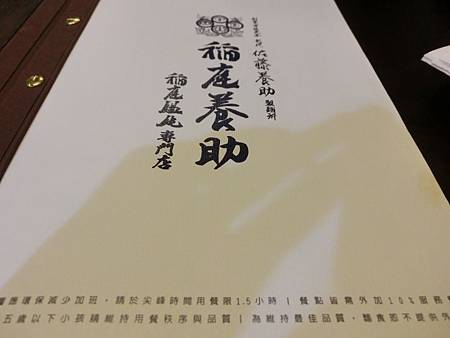 佐藤養助
稲庭養助
稲庭饂飩専門店
響應環保減少加班，請於尖峰時間用餐限1.5小時｜餐點皆需外加10%服務
五歲以下小孩請維持用餐秩序與品質｜為維持最佳品質，麵食恕不提供外